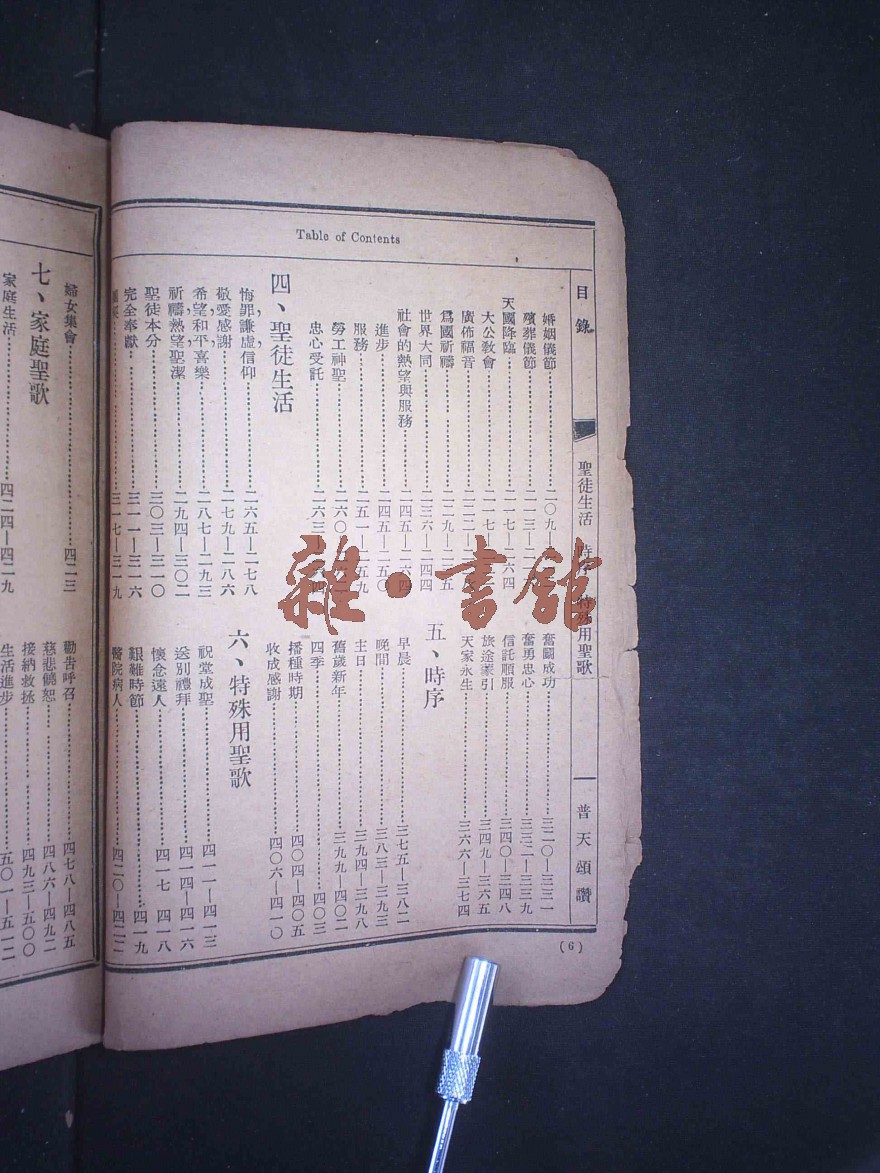 Table of Contents
目錄
聖徒生活 時序 特殊用聖歌
普天頌讚
(6)
婚姻儀節……二〇九—
殯葬儀節……二一三—
天國降臨……二一七—二六四
大公教會……二一七—
廣佈福音……二二二—
爲國祈禱……二二九—二三五
世界大同……二三六—二四四
社會的熱望與服務……二四五—二六四
進步……二四五—二五〇
服務……二五一—二五九
勞工神聖……二六〇—
忠心受託……二六三—
四、聖徒生活
悔罪,謙虛,信仰……二六五—二七八
敬愛,感謝……二七九—二八六
希望,和平,喜樂……二八七—一九三
祈禱,熱望,聖潔……二九四—三〇二
聖徒本分……三〇三—三一〇
完全奉獻……三一一—三一六
……三一七—三一九
奮鬭成功……三二〇—三三一
奮勇忠心……三三二—三三九
信託順服……三四〇—三四八
旅途蒙引……三四九—三六五
天家永生……三六六—三七四
五、時序
早晨……三七五—三八二
晚間……三八三—三九三
主日……三九四—三九八
舊歲新年……三九九—四〇二
四季……四〇三
播種時期……四〇四—四〇五
收成感謝……四〇六—四一〇
六、特殊用聖歌
祝堂成聖……四一一—四一三
送別禮拜……四一四—四一六
懷念遠人……四一七 四一八
艱難時節……四一九
醫院病人……四二〇—四二二
婦女集會……四二三
七、家庭聖歌
家庭生活……四二四—四二九
勸告呼召……四七八—四八五
慈悲饒恕……四八六—四九二
接納救拯……四九三—五〇〇
生活進步……五〇一—五一二
雜·書館